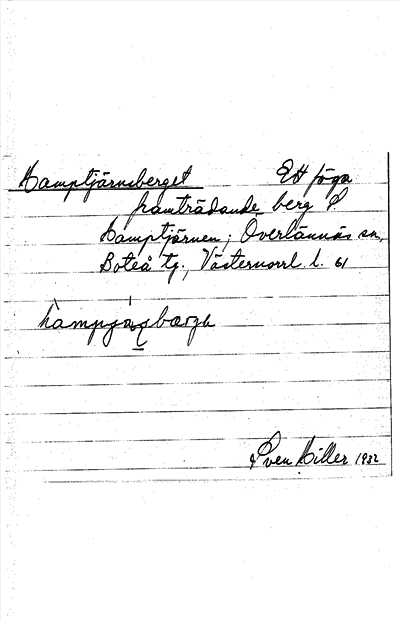 Hamptjärnsberget Ett föga
framträdande berg S.
Hamptjärnen; Överlännäs sn,
Boteå tg., Västernorrl. l. 61
Sven Hiller 1932